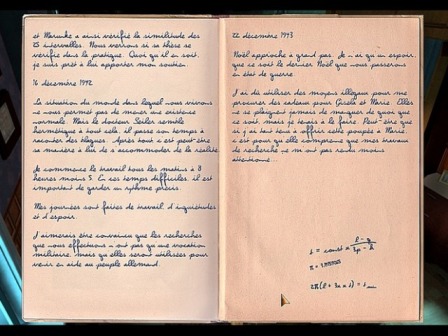 et Marunke a ainsi vérifié la similitude des
25 intervalles. Nous verrons si sa thèse se
vérifie dans la pratique. Quoi qu'il en soit,
je suis prêt à lui apporter mon soutien.
16 décembre 1942
La situation du monde dans lequel nous vivons
ne nous permet pas de mener une existence
normale. Mais le docteur Seiler semble
hermétique à tout cela, il passe son temps à
raconter des blagues. Après tout c'est peut-être
sa manière à lui de s'accommoder de la réalité.
Je commence le travail tous les matins à 8
heures moins 5. En ces temps difficiles, il est
important de garder un rythme précis.
Mes journées sont faites de travail, d'inquiétudes
et d'espoir.
J'aimerais être convaincu que les recherches
que nous effectuons n'ont pas qu'une vocation
militaire, mais qu'elles seront utilisées pour
venir en aide au peuple allemand.
22 décembre 1943
Noël approche à grand pas. Je n'ai qu'un espoir,
que ce soit le dernier Noël que nous passerons
en état de guerre.
J'ai dû utiliser des moyens illégaux pour me
procurer des cadeaux pour Gisela et Marie. Elles
ne se plaignent jamais de manquer de quoi que
ce soit, mais je tenais à le faire. Peut-être que
si j'ai tant tenu à offrir cette poupée à Marie,
c'est pour qu'elle comprenne que mes travaux
de recherche ne m'ont pas rendu moins
attentionné...